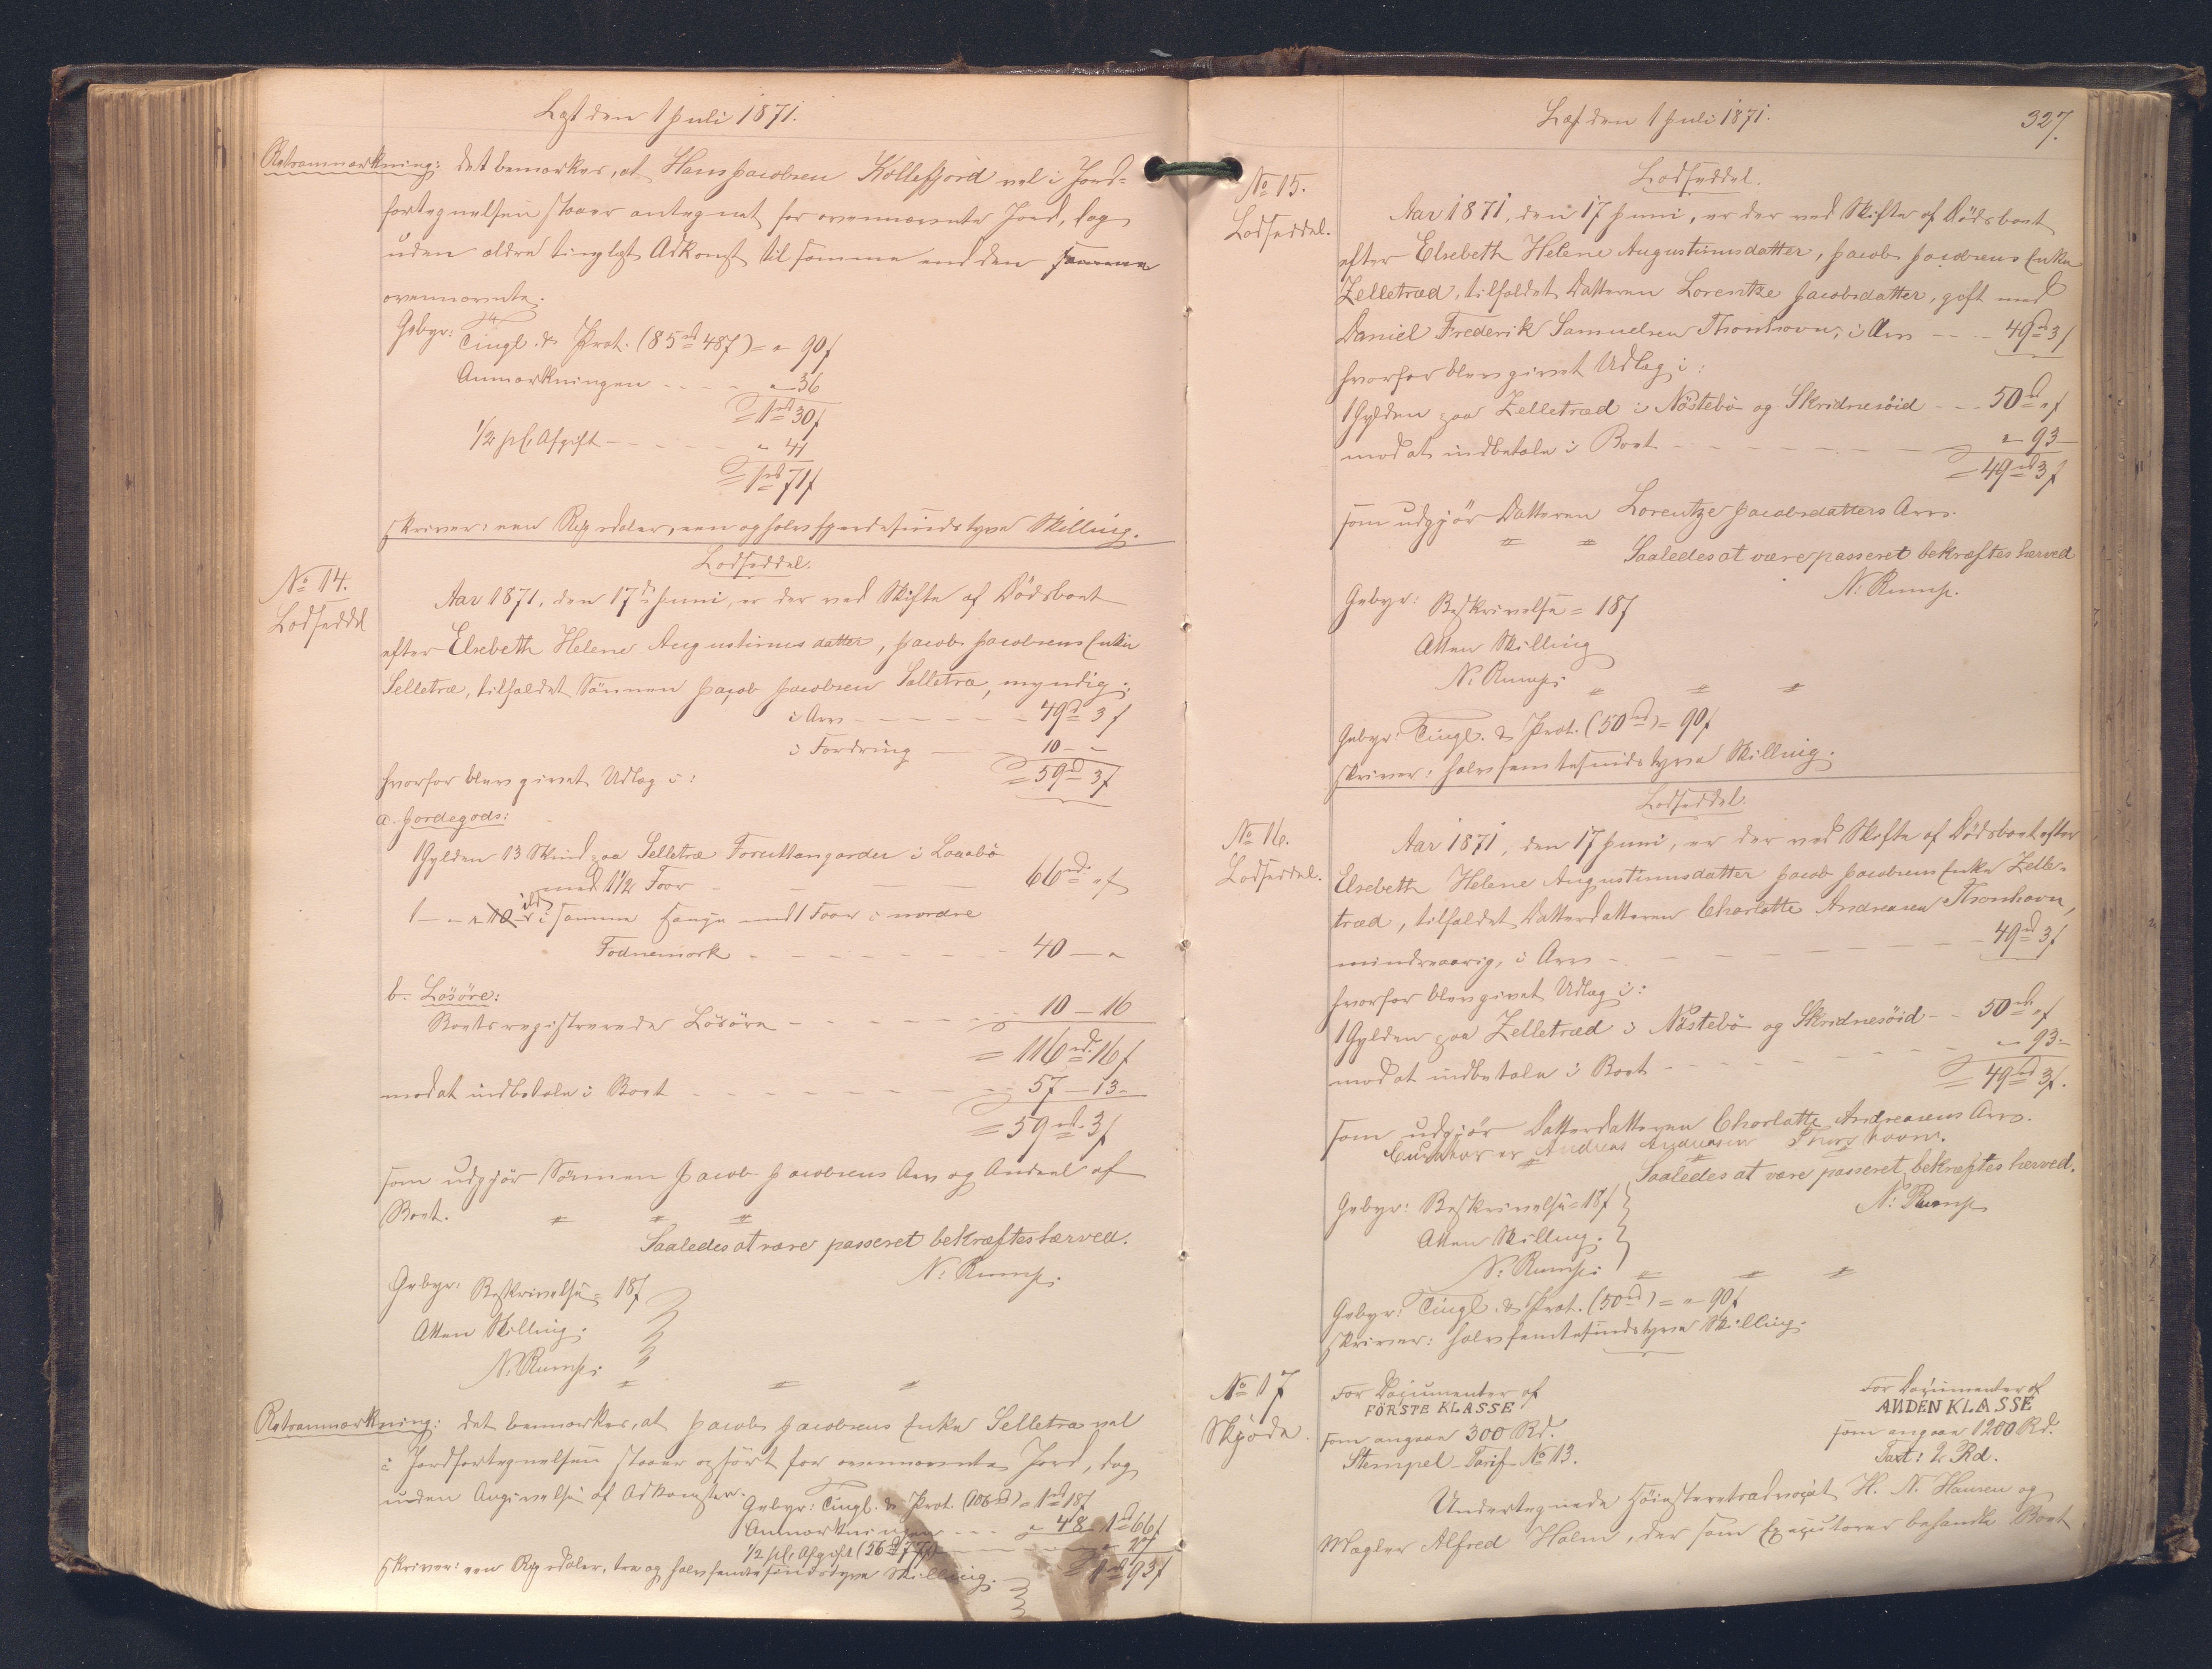 Læst den 1 Juli 1871.
Retsanmærkning: det bemærkes, at Hans Jacobsen Kollefjord vel i Jord-
fortegnelsen staaer antegnet for ovennævnte Jord, dog
uden ældre tinglæst Adkomst til samme end den
ovennævnte.
Gebyr: Tingl. & Prot. (85 rd 48 s) = " 90 s
Anmærkningen - - - - " 36
= 1 rd 30 s
1/2 pCt Afgift - - - - - " 41
= 1 rd 71 s
skriver: een Rigsdaler, een og halvfjerdesindstyve Skilling.
No 14.
Lodseddel
Lodseddel.
Aar 1871, den 17de Juni, er der ved Skifte af Dödsboet
efter Elsebeth Helene Augustinusdatter, Jacob Jacobsens Enke
Selletræ, tilfaldet Sönnen Jacob Jacobsen Selletræ, myndig;
i Arv - - - - - - 49 rd 3 s
i Fordring - - - 10 - "
hvorfor blev givet Udlæg i: = 59 rd 3 s
a. Jordegods:
1 Gylden 13 Skind paa Selletræ Foruttangarder i Laaabö
med 1 1/2 Foor - - - - 66 rd " s
1 - " i samme Hauge med 1 Foor i nordre
Fodnemork - - - - - - - - 40 - "
b. Lösöre:
Boets registrerede Lösöre - - - - - - - 10 - 16
= 116 rd 16 s
mod at indbetale i Boet - - - - - - - - 57 - 13 -
= 59 rd 3 s
som udgjör Sönnen Jacob Jacobsens Arv og Andeel af
Boet.
Saaledes at være passeret bekræftes herved.
N. Rump.
Gebyr: Beskrivelse = 18 s
Atten Skilling.
N. Rump.
Retsanmærkning: det bemærkes, at Jacob Jacobsens Enke Selletræ vel
i Jordfortegnelsen staaer opfört for ovennævnte Jord, dog
uden Angivelse af Adkomster.
Gebyr: Tingl. & Prot. (106 rd) = 1 rd 18 s
Anmærkningen - - - " 48 1 rd 66 s
1/2 pCt Afgift (56 rd 77 s) - - - " 27
skriver: een Rigsdaler, tre og halvfemtesindstyve Skilling. = 1 rd 93 s
Læst den 1 Juli 1871.
327.
No 15.
Lodseddel.
Lodseddel.
Aar 1871, den 17 Juni, er der ved Skifte af Dödsboet
efter Elsebeth Helene Augustinusdatter, Jacob Jacobsens Enke
Zelletræd, tilfaldet Datteren Lorentze Jacobsdatter, gift med
Daniel Frederik Samuelsen Thorshovn, i Arv - - - 49 rd 3 s
hvorfor blev givet Udlæg i:
1 Gylden paa Zelletræd i Nöstebö og Skridnesöid - - - 50 rd " s
mod at indbetale i Boet - - - - - - - - " 93 -
= 49 rd 3 s
som udgjör Datteren Lorentze Jacobsdatters Arv.
Saaledes at være passeret bekræftes herved
N. Rump.
Gebyr: Beskrivelse = 18 s
Atten Skilling
N. Rump.
Gebyr: Tingl. & Prot. (50 rd) = 90 s
skriver: halvfemtesindstyve Skilling.
No 16.
Lodseddel.
Lodseddel.
Aar 1871, den 17 Juni, er der ved Skifte af Dödsboet efter
Elsebeth Helene Augustinusdatter Jacob Jacobsens Enke Zelle-
træd, tilfaldet Datterdatteren Charlotte Andreasen Thorshovn,
mindreaarig, i Arv - - - - - - - - 49 rd 3 s
hvorfor blev givet Udlæg i:
1 Gylden paa Zelletræd i Nöstebö og Skridnesöid - - 50 rd " s
mod at indbetale i Boet - - - - - - - " 93 -
= 49 rd 3 s.
som udgjör Datterdatteren Charlotte Andreasens Arv.
Curator er Andreas Andreasen Thorshovn.
Saaledes at være passeret bekræftes herved.
N. Rump
Gebyr: Beskrivelse = 18 s
Atten Skilling.
N. Rump.
Gebyr: Tingl. & Prot. (50 rd) = " 90 s
skriver: halvfemtesindstyve Skilling.
No 17
Skjöde.
For Documenter af
FÖRSTE KLASSE
som angaae 300 Rd.
Stempel-Tarif No 13.
For Documenter af
ANDEN KLASSE
som angaae 1200 Rd.
Taxt: 2 Rd.
Undertegnede Höiesteretsadvocat H. N. Hansen og
Mægler Alfred Holm, der som Executorer behandle Boet